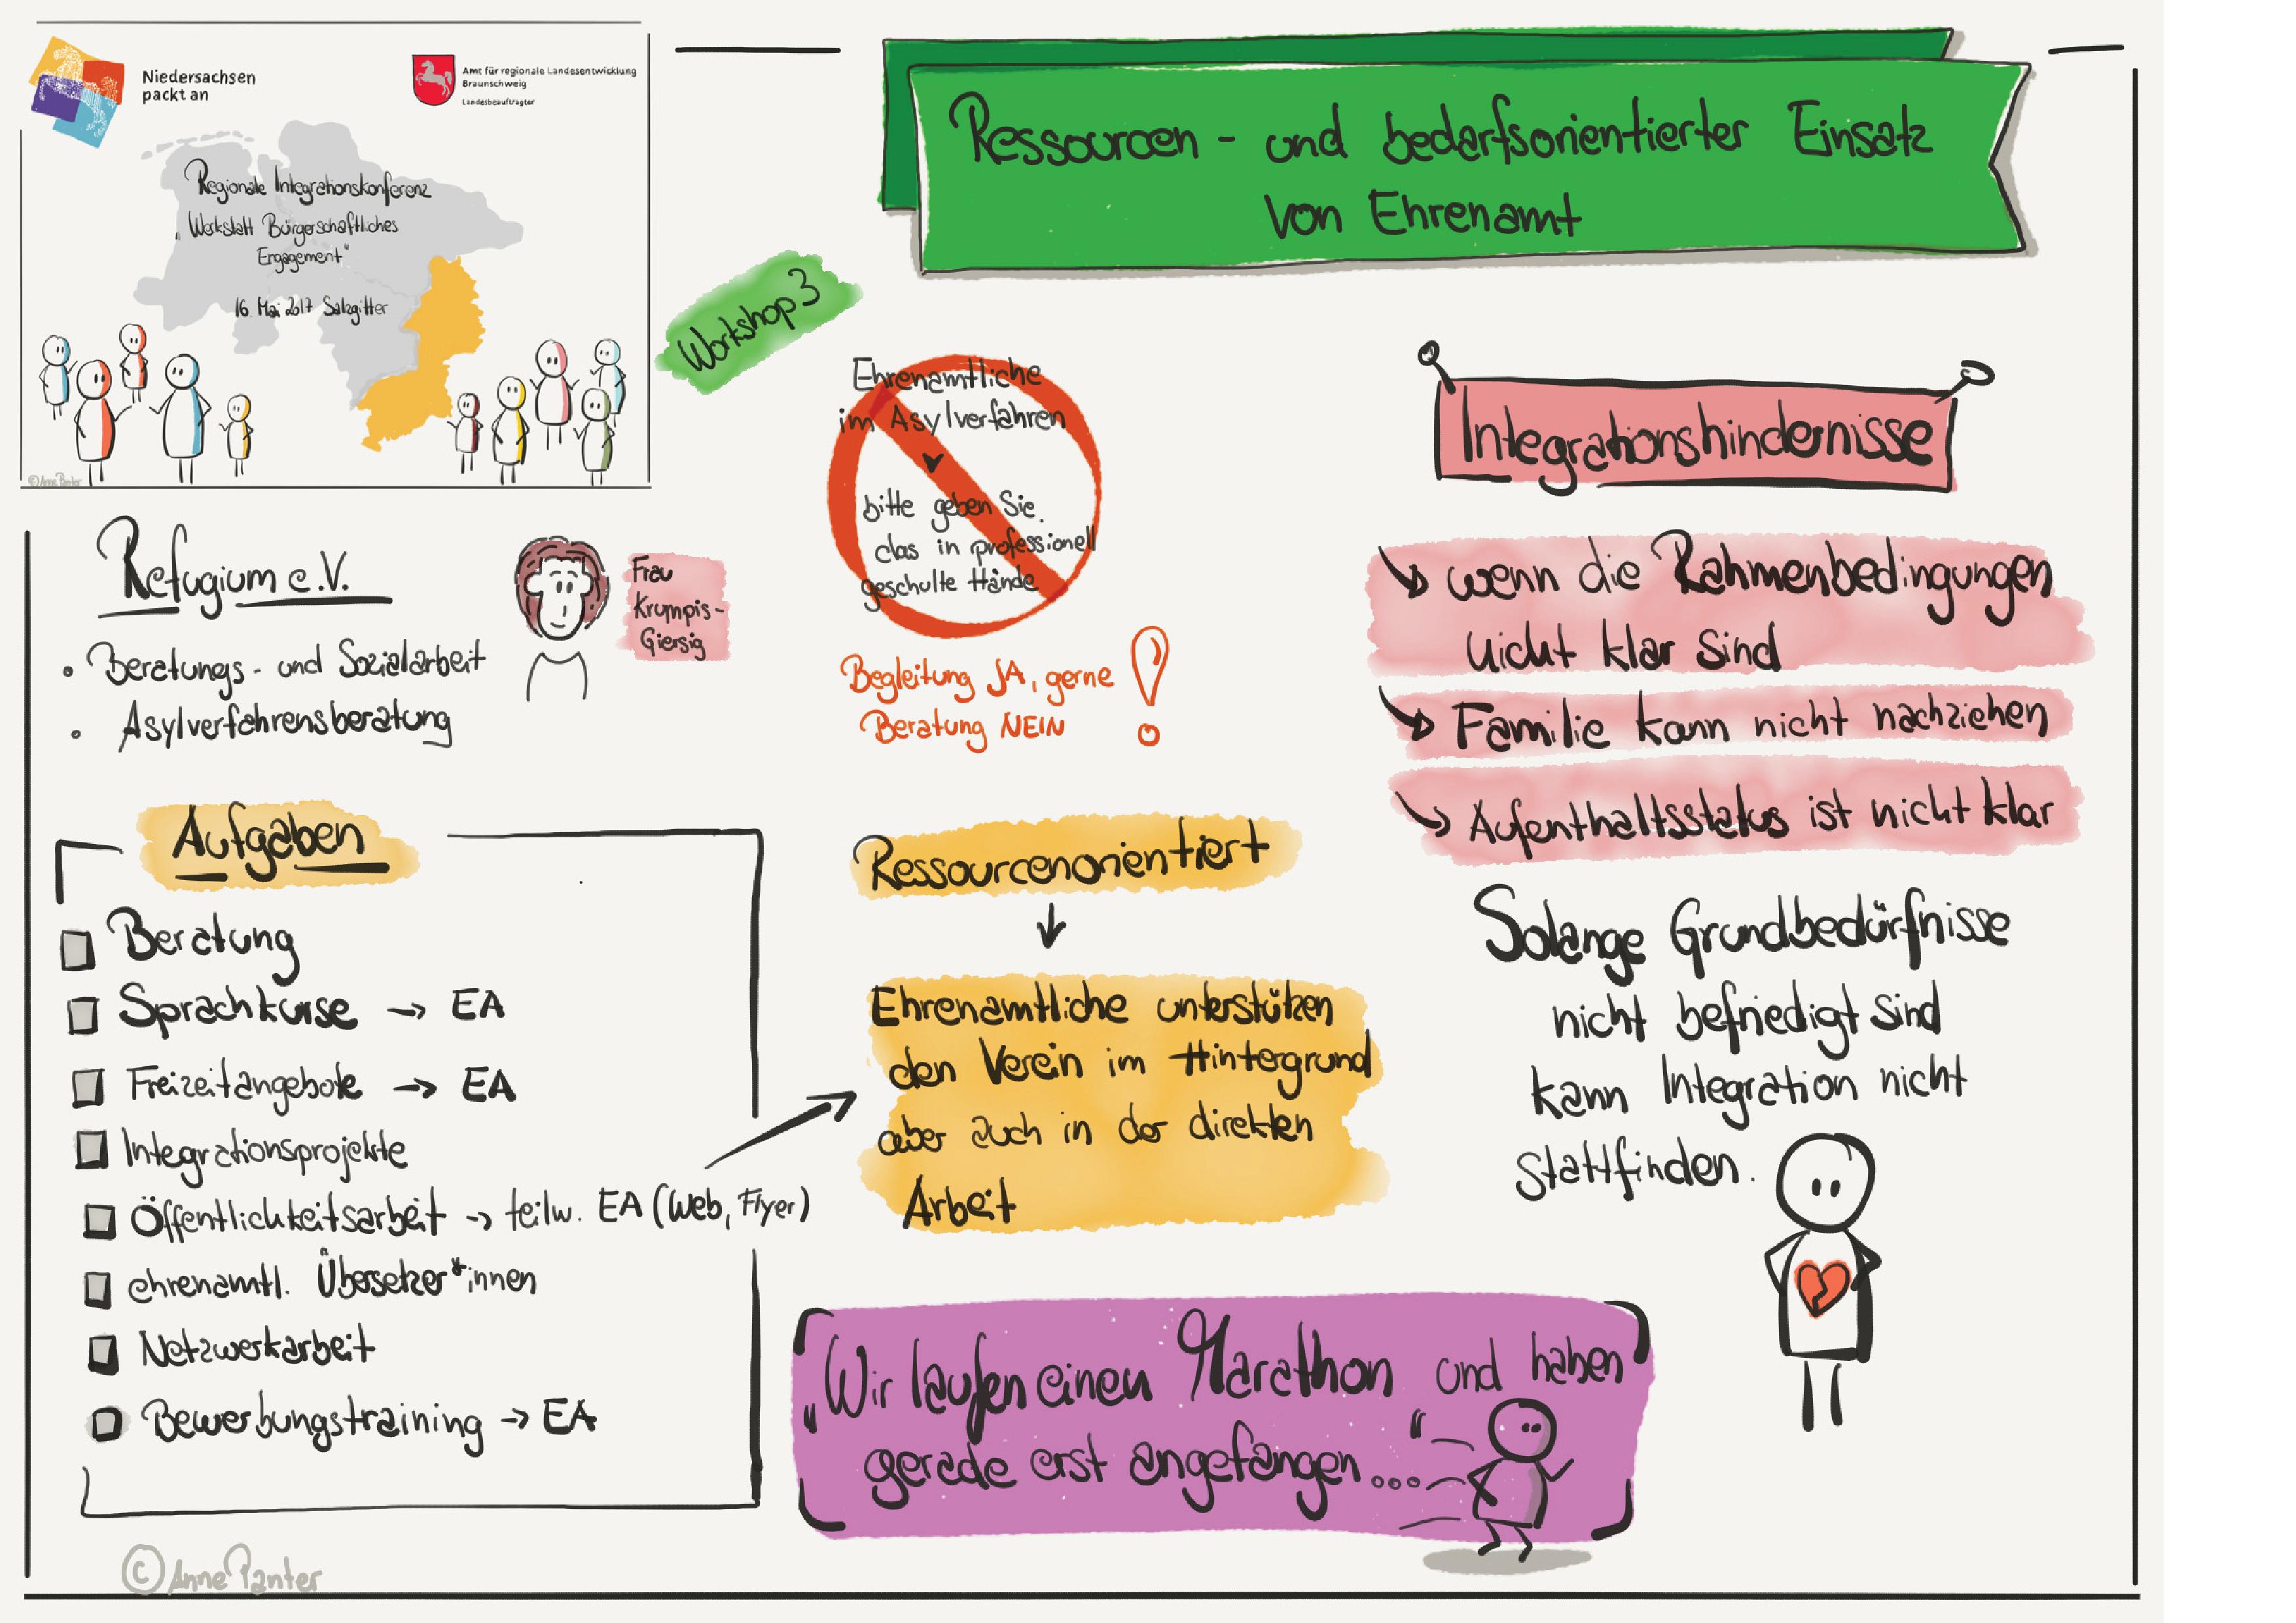 Niedersachsen
packt an
Amt für regionale Landesentwicklung
Braunschweig
Landesbeauftragter
Regionale Integrationskonferenz
„Werkstatt Bürgerschaftliches
Engagement“
16. Mai 2017 Salzgitter
©Anne Panter
Ressourcen- und bedarfsorientierter Einsatz
von Ehrenamt
Workshop 3
Refugium e.V.
• Beratungs- und Sozialarbeit
• Asylverfahrensberatung
Frau
Krumpis-
Giersig
Ehrenamtliche
im Asylverfahren
bitte geben Sie
das in professionell
geschulte Hände
Begleitung JA, gerne
Beratung NEIN !
Aufgaben
Beratung
Sprachkurse → EA
Freizeitangebote → EA
Integrationsprojekte
Öffentlichkeitsarbeit → teilw. EA (Web, Flyer)
ehrenamtl. Übersetzer*innen
Netzwerkarbeit
Bewerbungstraining → EA
Ressourcenorientiert
↓
Ehrenamtliche unterstützen
den Verein im Hintergrund
aber auch in der direkten
Arbeit
Integrationshindernisse
wenn die Rahmenbedingungen
nicht klar sind
Familie kann nicht nachziehen
Aufenthaltsstatus ist nicht klar
Solange Grundbedürfnisse
nicht befriedigt sind
kann Integration nicht
stattfinden.
„Wir laufen einen Marathon und haben
gerade erst angefangen...“
© Anne Panter